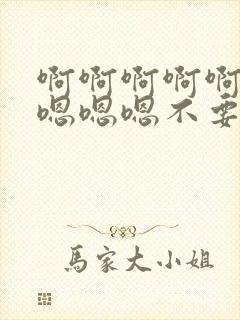 啊啊啊啊啊
嗯嗯嗯不要
馬家大小姐